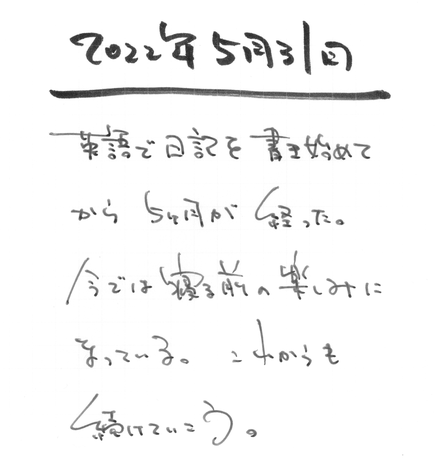 2022年5月31日
英語で日記を書き始めて
から5ヶ月が経った。
今では寝る前の楽しみに
なっている。これからも
続けていこう。